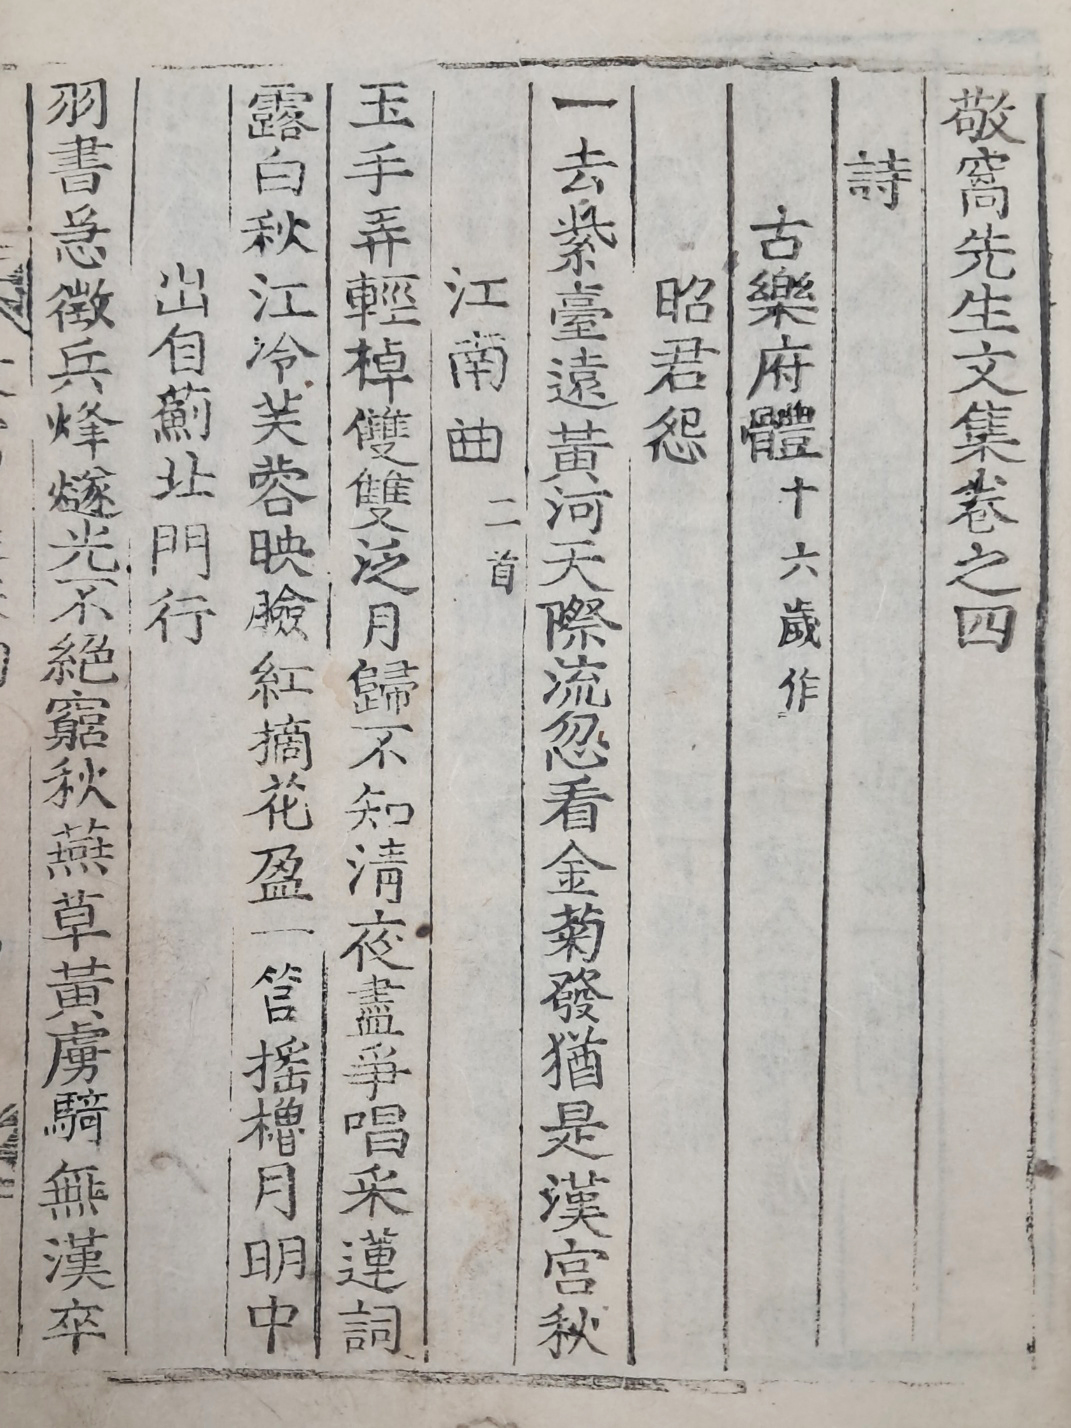 敬窩先生文集卷之四
詩
古樂府體十六歲作
昭君怨
一去紫臺遠黃河天際流忽看金菊發猶是漢宮秋
江南曲二首
玉手弄輕棹雙雙泛月歸不知淸夜盡爭唱采蓮詞
露白秋江冷芙蓉映臉紅摘花盈一筥搖櫓月明中
出自薊北門行
羽書急徵兵烽燧光不絕窮秋燕草黃虜騎無漢卒